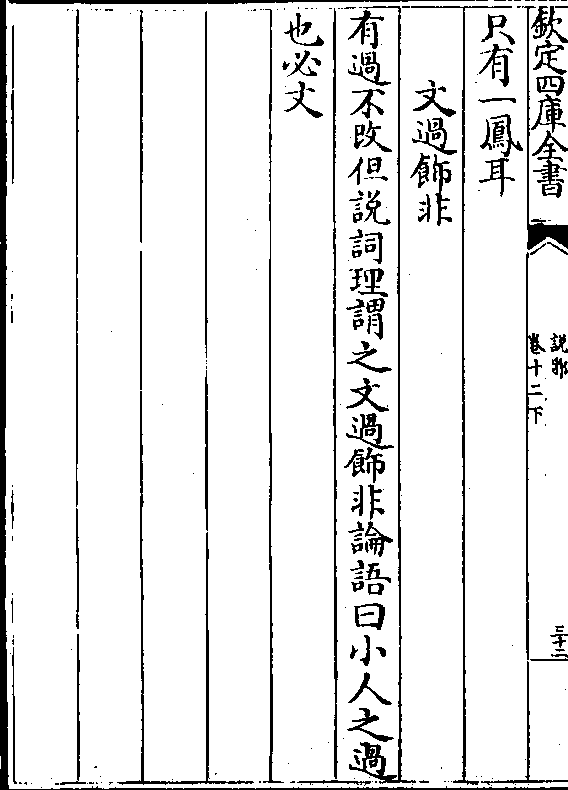 欽定四庫全書
說郛
卷十二下
三十二
只有一鳳耳
文過飾非
有過不改但説詞理謂之文過飾非論語曰小人之過
也必丈